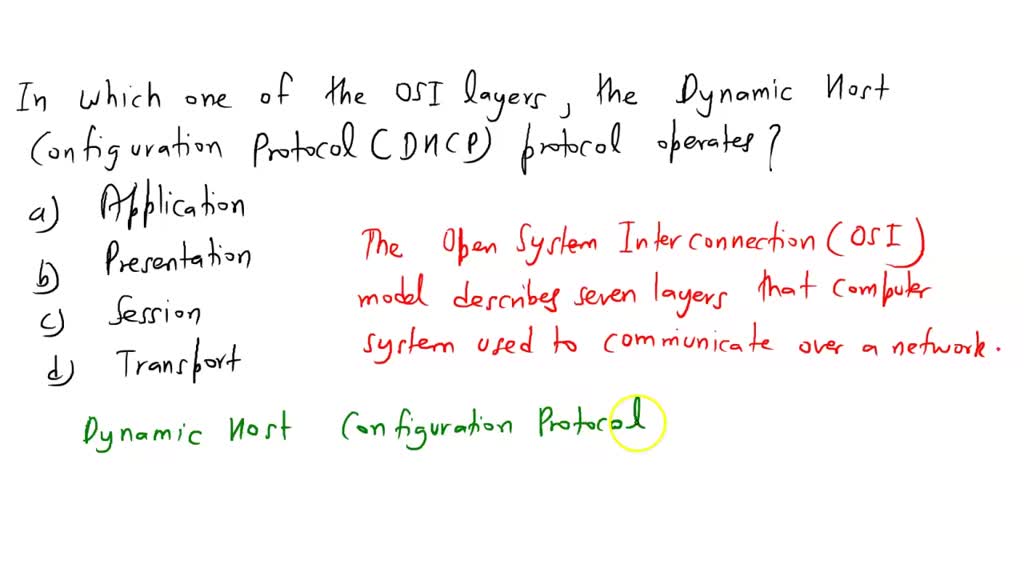 In which one of the OSI layers, the Dynamic Host
Configuration Protocol (DHCP) protocol operates?
a) Application
b) Presentation
c) Session
d) Transport
The Open System Interconnection (OSI)
model describes seven layers that computer
system used to communicate over a network.
Dynamic Host Configuration Protocol